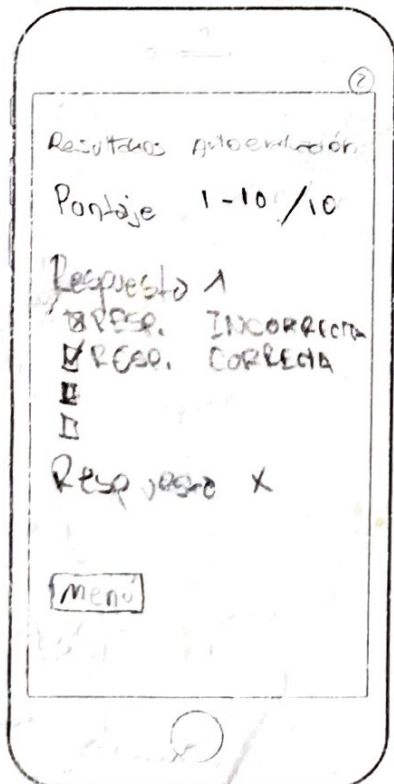 2
Resultados Autoevaluación
Puntaje 1-10/10
Respuesta 1
RESP. INCORRECTA
RESP. CORRECTA
Respuesta X
Menú